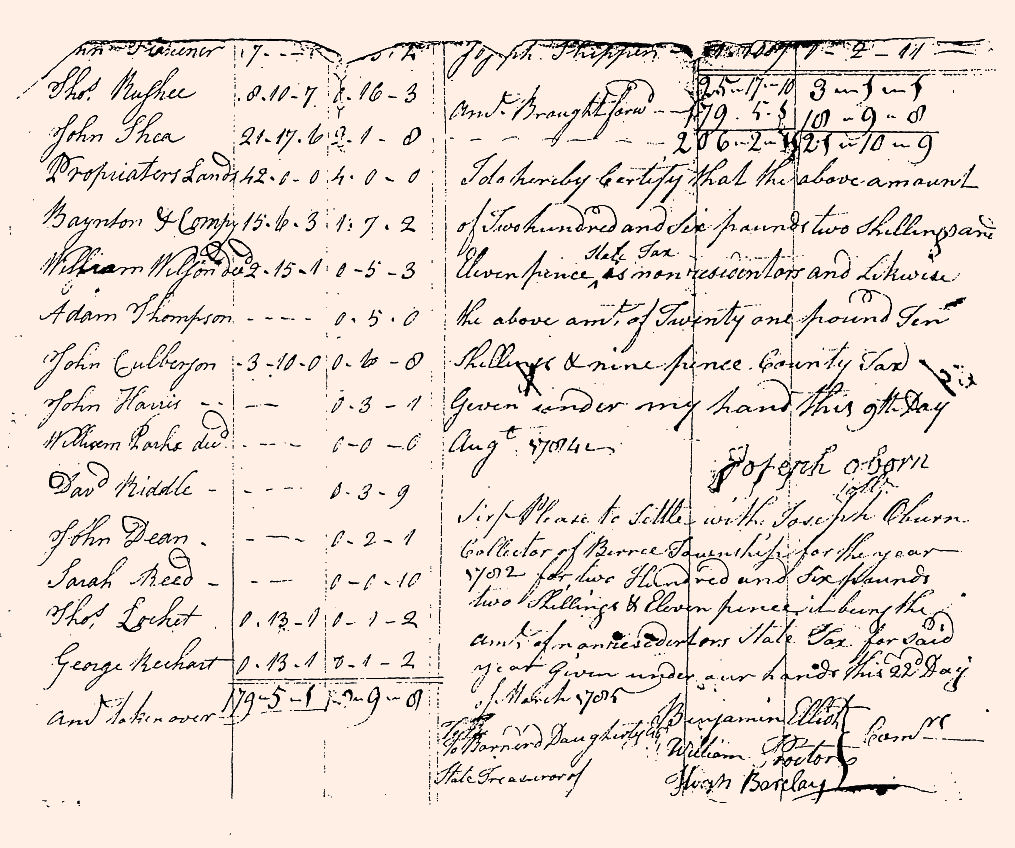 7 - - - -
Thos. Rushee 8-10-7 0-16-3
John Shea 21-17-6 2-1-8
Propriaters Lands 42-0-0 4-0-0
Baynton & Compy 15-6-3 1-7-2
William Wilson decd 2-15-1 0-5-3
Adam Thompson ---- 0-5-0
John Culberson 3-10-0 0-6-8
John Harris -- -- 0-3-1
William Parks decd --- 0-0-0
Davd Riddle - ---- 0-3-9
John Dean . ---- 0-2-1
Sarah Reed - --- 0-0-10
Thos. Locket 0-13-1 0-1-2
George Rechart 0-13-1 0-1-2
amt taken over 179-5-1 -9-8
Joseph Shippen 7-2-11
25-17-10 3-1-1
amt. Braught forwd 179-5-1 18-9-8
206-2-11 21-10-9
I do hereby Certify that the above amount
of Two hundred and Six pounds two Shillings and
State Tax
Eleven pence ^ as nonresidentors and Likwise
the above amt. of Twenty one pound Ten
Shillings & nine pence County Tax
Given under my hand this 9th Day
Augt 1784
Joseph Oborn
Collr.
Sir/ Please to Settle with Joseph Oburn
Collector of Berree Township for the year
1782 for two Hundred and Six pounds
two Shillings & Eleven pence it being the
amt. of nonresedentors State Tax for Said
year Given under our hands this 22d Day
of March 1785
To Barnerd Daugherty Esqr
State Treasuror of
Benjamin Elliot
William Proctor
Hugh Barclay
Comrs